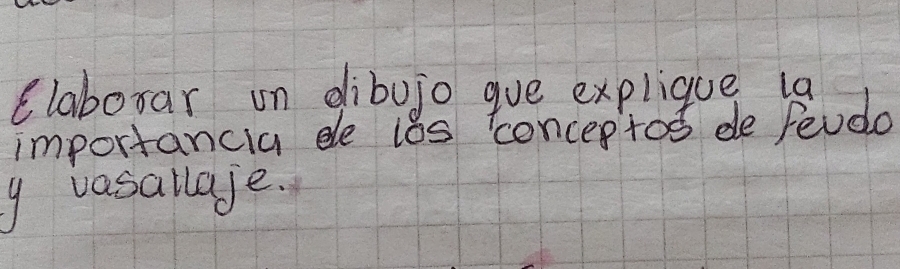 Elaborar un dibujo que explique la
importancia de los conceptos de feudo
y vasallaje.